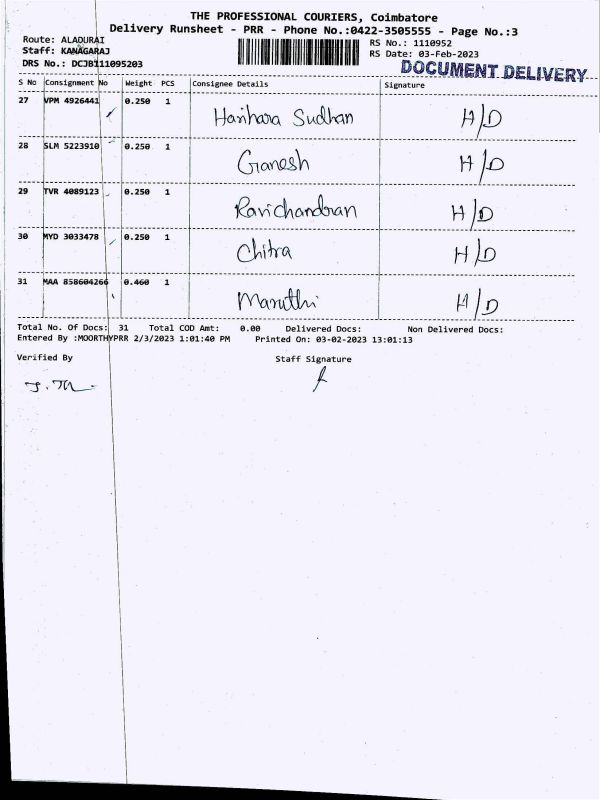 THE PROFESSIONAL COURIERS, Coimbatore
Delivery Runsheet - PRR - Phone No.:0422-3505555 - Page No.:3
Route: ALADURAI
Staff: KANAGARAJ
DRS No.: DCJB111095203
RS No.: 1110952
RS Date: 03-Feb-2023
DOCUMENT DELIVERY
S No Consignment No Weight PCS Consignee Details Signature
27 VPM 4926441 0.250 1 Harihara Sudhan H/D
28 SLM 5223910 0.250 1 Ganesh H/D
29 TVR 4089123 0.250 1 Ravichandran H/D
30 MYD 3033478 0.250 1 Chitra H/D
31 MAA 858604266 0.460 1 Maruthi H/D
Total No. Of Docs: 31 Total COD Amt: 0.00 Delivered Docs: Non Delivered Docs:
Entered By :MOORTHYPRR 2/3/2023 1:01:40 PM Printed On: 03-02-2023 13:01:13
Verified By Staff Signature